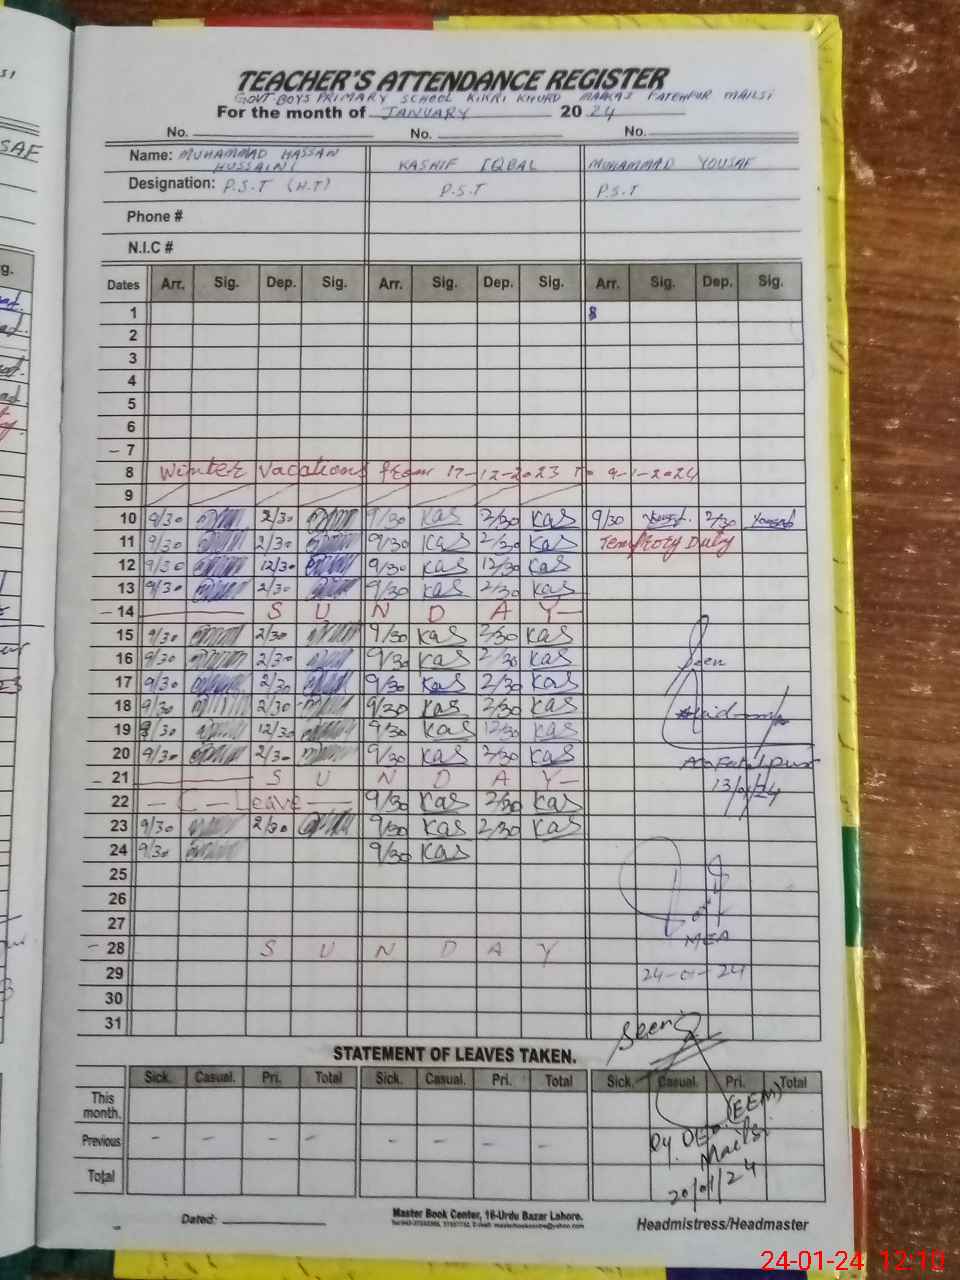 TEACHER'S ATTENDANCE REGISTER
GOVT BOYS PRIMARY SCHOOL KIKRI KHURD MARKAZ FATEHPUR MAILSI
For the month of JANUARY 2024
No. No. No.
Name: MUHAMMAD HASSAN HUSSAINI KASHIF IQBAL MUHAMMAD YOUSAF
Designation: P.S.T (H.T) P.S.T P.S.T
Phone #
N.I.C #
Dates Arr. Sig. Dep. Sig. Arr. Sig. Dep. Sig. Arr. Sig. Dep. Sig.
1
2
3
4
5
6
7
8 Winter Vacations from 17-12-2023 To 9-1-2024
9
10 9/30 2/30 9/30 Kas 2/30 Kas 9/30 Yousaf 2/30 Yousaf
11 9/30 2/30 9/30 Kas 2/30 Kas Temproty Duty
12 9/30 12/30 9/30 Kas 12/30 Kas
13 9/30 2/30 9/30 Kas 2/30 Kas
14 S U N D A Y
15 9/30 2/30 9/30 Kas 2/30 Kas
16 9/30 2/30 9/30 Kas 2/30 Kas
Seen
17 9/30 2/30 9/30 Kas 2/30 Kas
18 9/30 2/30 9/30 Kas 2/30 Kas
19 9/30 12/30 9/30 Kas 12/30 Kas
20 9/30 2/30 9/30 Kas 2/30 Kas
21 S U N D A Y
13/01/24
22 C-Leave 9/30 Kas 2/30 Kas
23 9/30 2/30 9/30 Kas 2/30 Kas
24 9/30 9/30 Kas
25
26
27
MEA
28 S U N D A Y
29 24-01-24
30
31
Seen
STATEMENT OF LEAVES TAKEN.
Sick. Casual. Pri. Total Sick. Casual. Pri. Total Sick. Casual. Pri. Total
This month.
Previous - - - - - - - -
Total
Dy. DEO (EEM)
Mailsi
20/01/24
Dated:
Master Book Center, 16-Urdu Bazar Lahore.
Headmistress/Headmaster
24-01-24 12:10